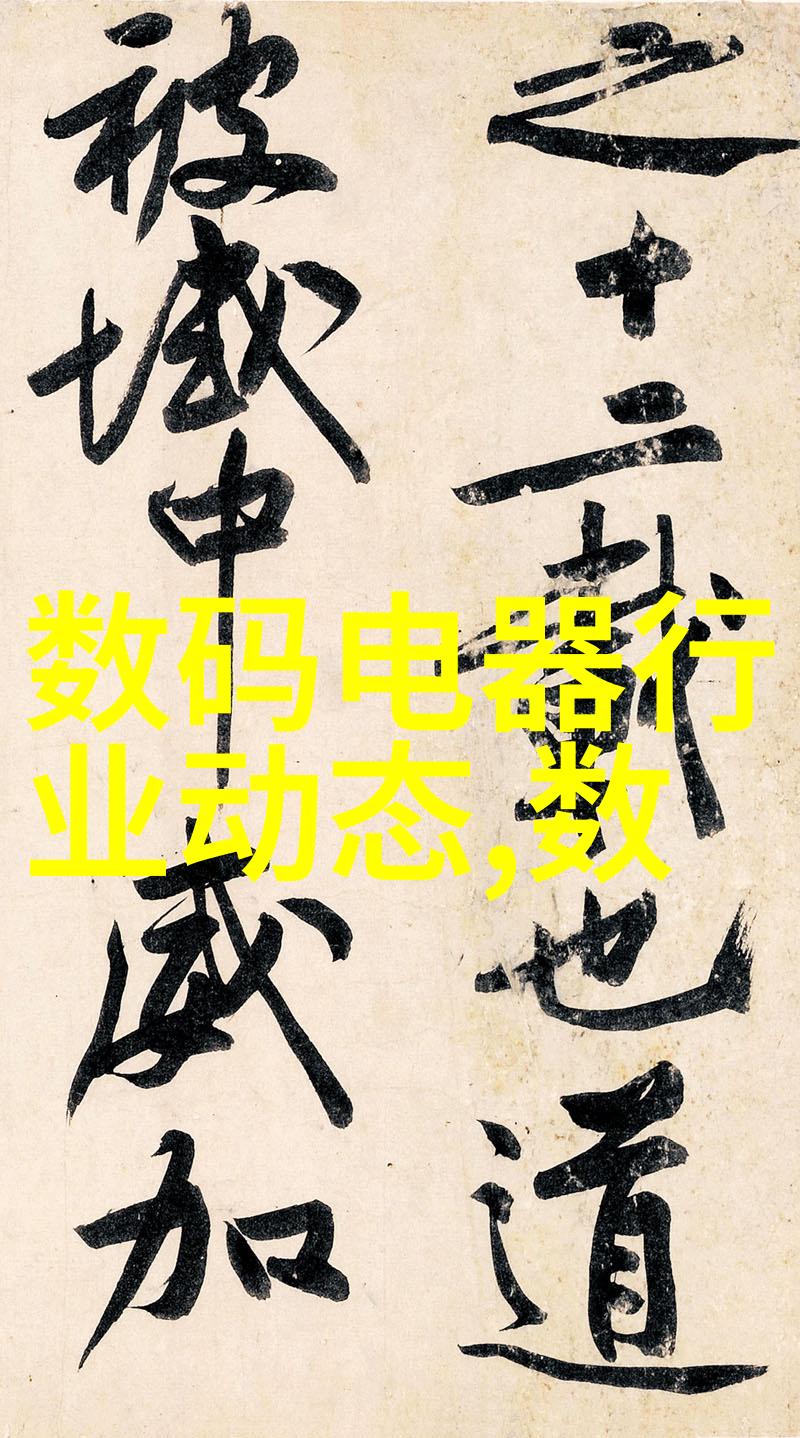 之十二載也道
被域中威加
数码电器行
业动态,数